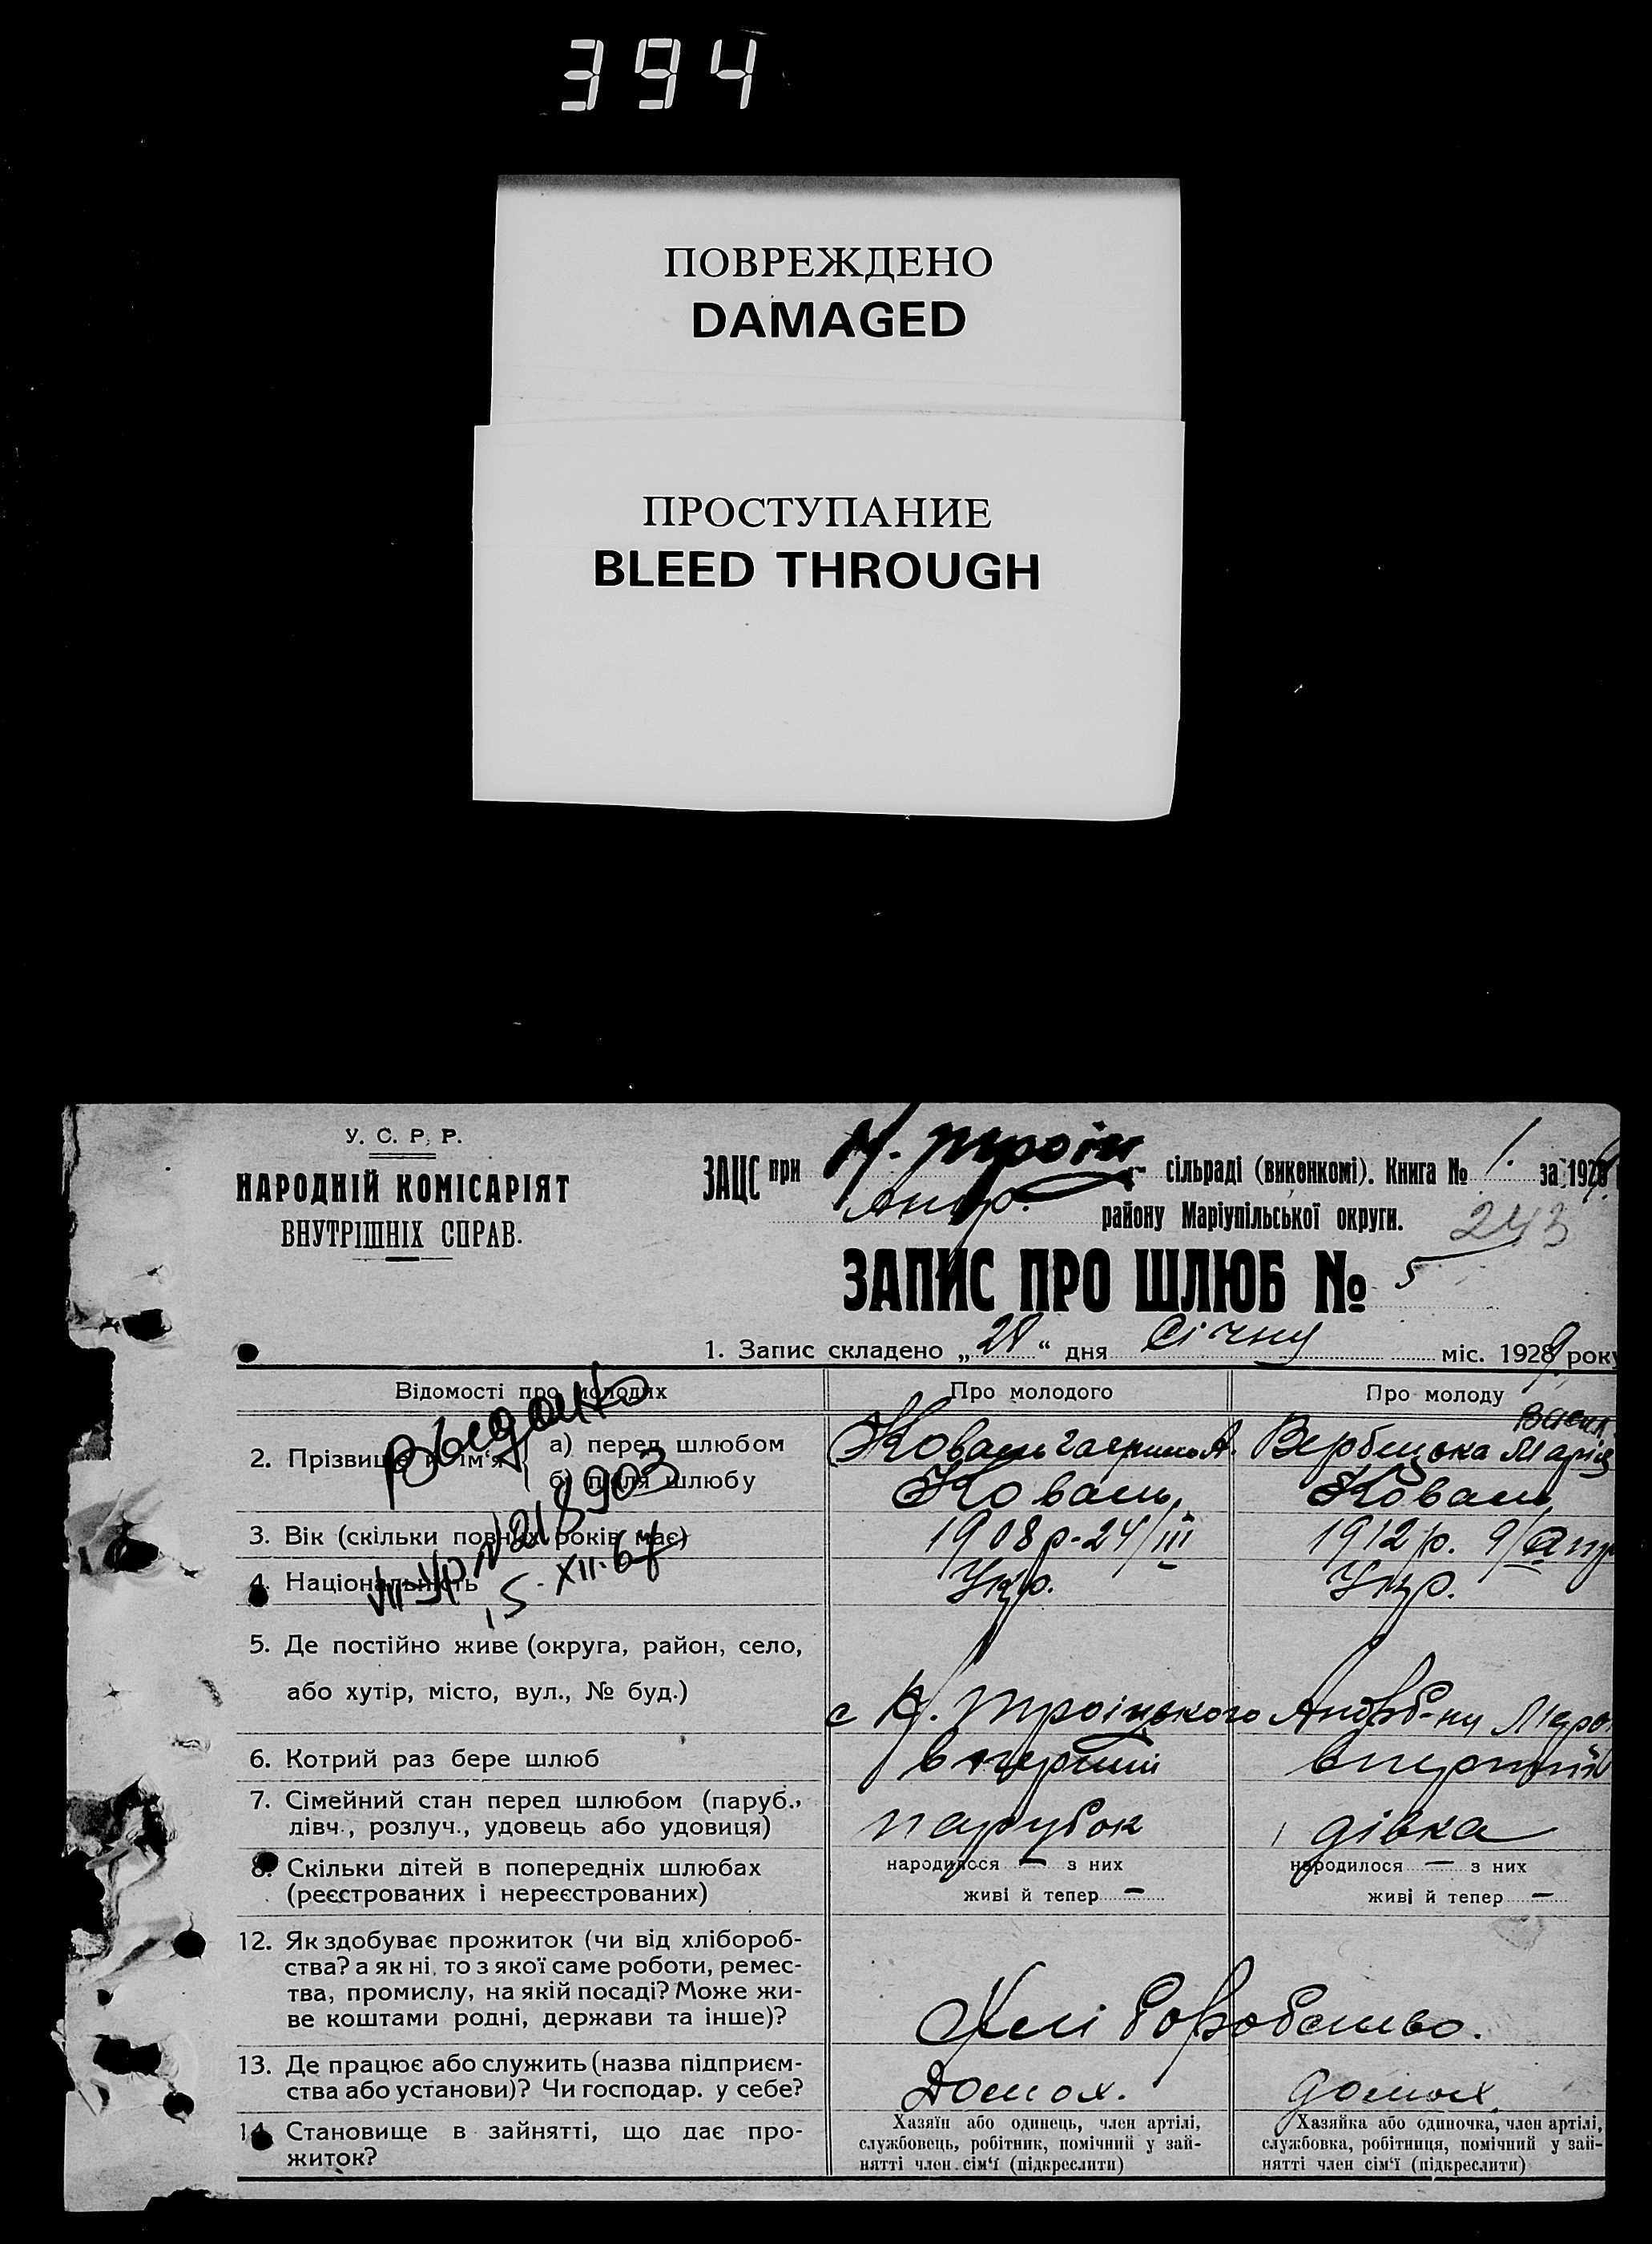 394
ПОВРЕЖДЕНО
DAMAGED
ПРОСТУПАНИЕ
BLEED THROUGH
У. С. Р. Р.
НАРОДНІЙ КОМІСАРІЯТ
ВНУТРІШНІХ СПРАВ.
ЗАЦС при Н. Троїц сільраді (виконкомі). Книга № 1. за 1929
району Маріупільської округи.
243
ЗАПИС ПРО ШЛЮБ № 5
1. Запис складено „28“ дня Січну міс. 1929 року
Відомості про молодих
Про молодого
Про молоду
2. Прізвище й ім'я { а) перед шлюбом
б) після шлюбу
Коваль А.
Коваль
Вербицька Марія
Коваль
3. Вік (скільки повних років має)
1908 р. 24/III
1912 р. 9/
4. Національність
Укр.
Укр.
15 XII-67
5. Де постійно живе (округа, район, село,
або хутір, місто, вул., № буд.)
с Н. Троїцького
6. Котрий раз бере шлюб
вперший
вперший
7. Сімейний стан перед шлюбом (паруб.,
дівч., розлуч., удовець або удовиця)
парубок
дівка
8. Скільки дітей в попередніх шлюбах
(реєстрованих і нереєстрованих)
народилося — з них
живі й тепер —
народилося — з них
живі й тепер —
12. Як здобуває прожиток (чи від хлібороб-
ства? а як ні, то з якої саме роботи, ремес-
тва, промислу, на якій посаді? Може жи-
ве коштами родні, держави та інше)?
Хліборобство.
13. Де працює або служить (назва підприєм-
ства або установи)? Чи господар. у себе?
Домох.
домох
14. Становище в зайнятті, що дає про-
житок?
Хазяїн або одинець, член артілі,
службовець, робітник, помічний у зай-
нятті член сім'ї (підкреслити)
Хазяйка або одиночка, член артілі,
службовка, робітниця, помічний у зай-
нятті член сім'ї (підкреслити)